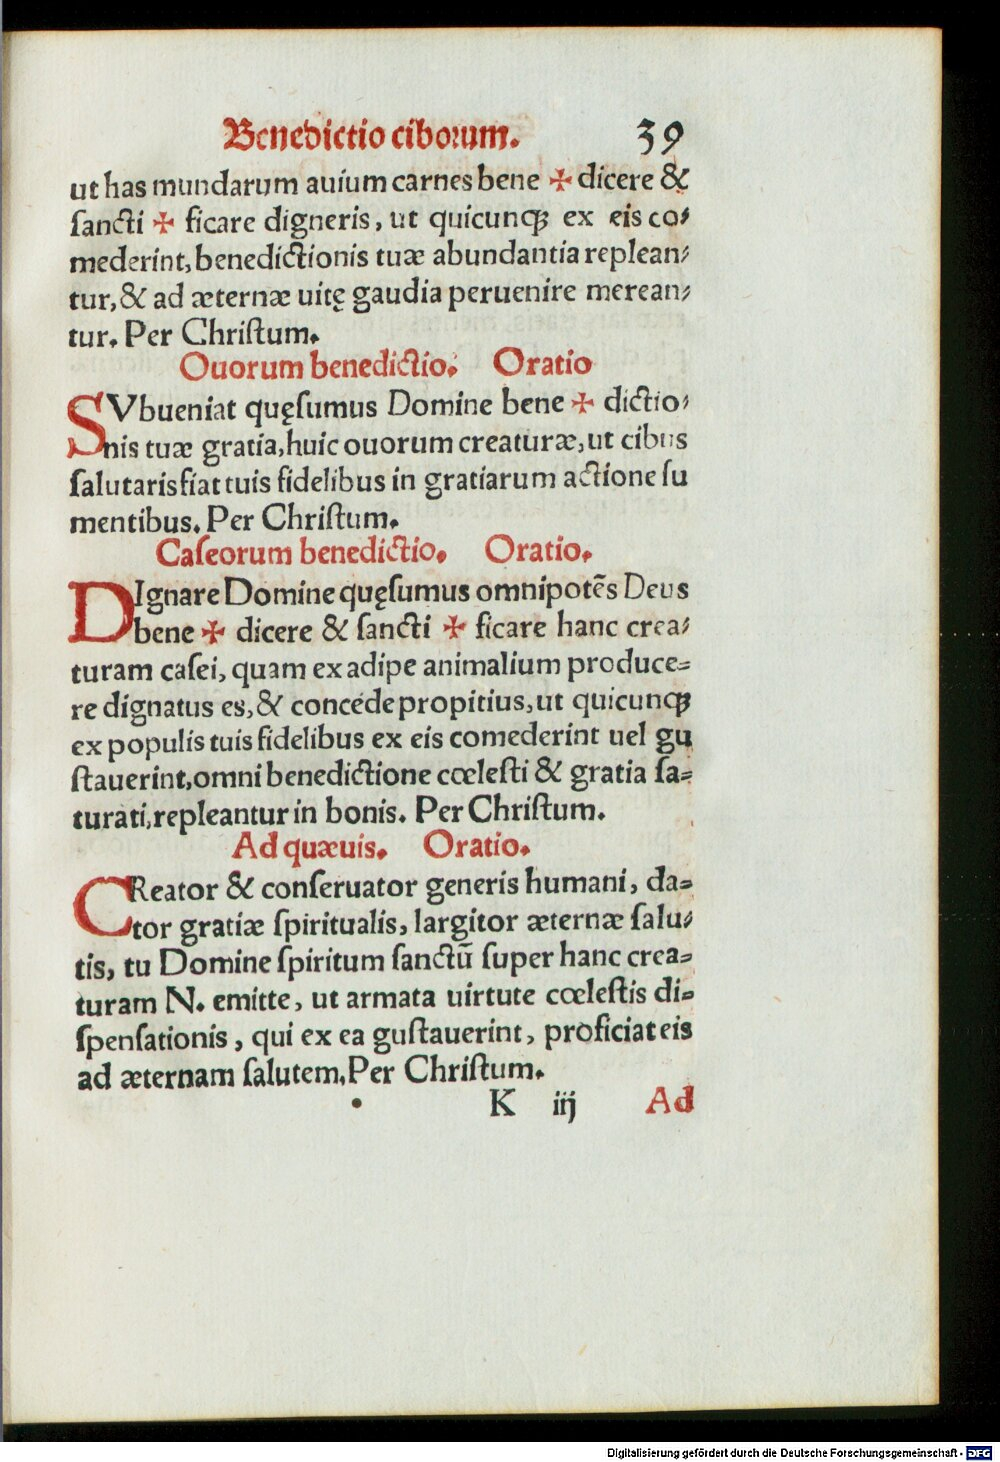 Benedictio ciborum. 39
ut has mundarum auium carnes bene ✠ dicere &
ſancti ✠ ficare digneris, ut quicunq; ex eis co⸗
mederint, benedictionis tuæ abundantia replean⸗
tur, & ad æternæ uitę gaudia peruenire merean⸗
tur. Per Chriſtum.
Ouorum benedictio. Oratio
SVbueniat quęſumus Domine bene ✠ dictio⸗
nis tuæ gratia, huic ouorum creaturæ, ut cibus
ſalutaris fiat tuis fidelibus in gratiarum actione ſu
mentibus. Per Chriſtum.
Caſeorum benedictio. Oratio.
DIgnare Domine quęſumus omnipotēs Deus
bene ✠ dicere & ſancti ✠ ficare hanc crea⸗
turam caſei, quam ex adipe animalium produce⸗
re dignatus es, & concede propitius, ut quicunq;
ex populis tuis fidelibus ex eis comederint uel gu
ſtauerint, omni benedictione cœleſti & gratia ſa⸗
turati, repleantur in bonis. Per Chriſtum.
Ad quæuis. Oratio.
CReator & conſeruator generis humani, da⸗
tor gratiæ ſpiritualis, largitor æternæ ſalu⸗
tis, tu Domine ſpiritum ſanctū ſuper hanc crea⸗
turam N. emitte, ut armata uirtute cœleſtis di⸗
ſpenſationis, qui ex ea guſtauerint, proficiat eis
ad æternam ſalutem. Per Chriſtum.
K iij Ad
Digitalisierung gefördert durch die Deutsche Forschungsgemeinschaft - DFG